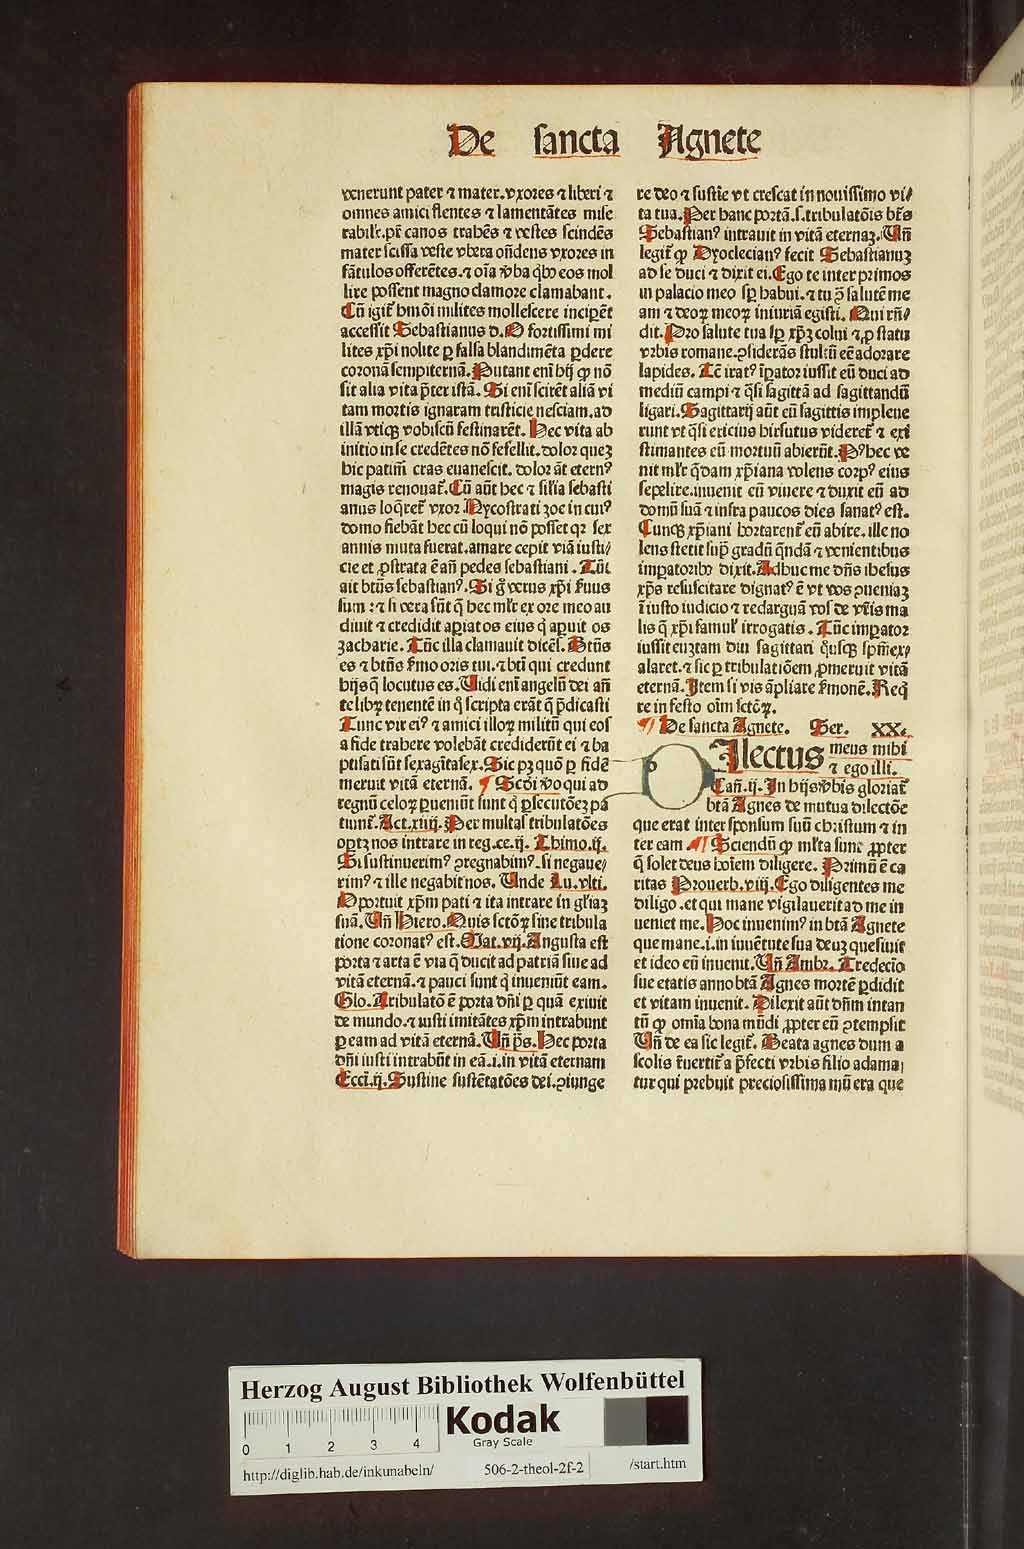 De sancta Agnete
venerunt pater ⁊ mater. vxores ⁊ liberi ⁊
omnes amici flentes ⁊ lamentātes mise
rabilr̄. pr̄ canos trahēs ⁊ vestes scindēs
mater scissa veste vbera oñdens vxores in
fātulos offerētes. ⁊ oīa v̄ba qb9 eos mol
lire possent magno clamore clamabant.
Cū igit̄ hmōi milites mollescere inciperēt
accessit Sebastianus d. O fortissimi mi
lites xp̄i nolite ꝑ falsa blandimēta ꝑdere
coronā sempiternā. Putant enī hij ꝙ nō
sit alia vita p̄ter istā. Si enī scirēt aliā vi
tam mortis ignaram tristicie nesciam. ad
illā vtiqꝫ vobiscū festinarēt. Hec vita ab
initio in se credētes nō fefellit. dolor queꝫ
hic patim̄ cras euanescit. dolor āt etern9
magis renouat̄. Cū aūt hec ⁊ sil̄ia sebasti
anus loqret̄ vxor Nycostrati zoe in cui9
domo fiebāt hec cū loqui nō posset qꝛ sex
annis muta fuerat. amare cepit viā iusti/
cie et ꝓstrata ē añ pedes sebastiani. Tūc
ait btūs sebastian9. Si g̊ verus xp̄i ẜuus
sum: ⁊ si vera sūt q̄ hec ml̄r ex ore meo au
diuit ⁊ credidit aperiat os eius q̇ aꝑuit os
zacharie. Tūc illa clamauit dicēs. Btūs
es ⁊ btūs ẜmo oris tui. ⁊ btī qui credunt
hijs q̄ locutus es. Uidi enī angelū dei añ
te librꝫ tenentē in q̊ scripta erāt q̄ p̄dicasti
Tunc vir ei9 ⁊ amici illoꝝ militū qui eos
a fide trahere volebāt crediderūt ei ⁊ ba
ptisati sūt sexagītasex. Sic pꝫ quō ꝑ fidē
meruit vitā eternā. ¶ Scd̄i v̄o qui ad
regnū celoꝝ ꝑueniūt sunt q̇ ꝑsecutōeꝫ pa
tiunt̄. Act. xiiij. Per multas tribulatōes
optꝫ nos intrare in reg. ce. ij. Thimo. ij.
Si sustinuerim9 ꝯregnabim9. si negaue/
rim9 ⁊ ille negabit nos. Unde Lu. vlti.
Oportuit xp̄m pati ⁊ ita intrare in gl̄iaꝫ
suā. Uñ Hiero. Quis sctōꝝ sine tribula
tione coronat9 est. Mat. vij. Angusta est
porta ⁊ arta ē via q̄ ducit ad patriā siue ad
vitā eternā. ⁊ pauci sunt q̇ inueniūt eam.
Glo. Tribulatō ē porta dn̄i ꝑ quā exiuit
de mundo. ⁊ iusti imitātes xp̄m intrabunt
ꝑ eam ad vitā eternā. Uñ ps̄. Hec porta
dn̄i iusti intrabūt in eā. i. in vitā eternam
Ecci. ij. Sustine sustētatōes dei. ꝯiunge
re deo ⁊ sustīe vt crescat in nouissimo vi/
ta tua. Per hanc portā. s. tribulatōis bt̄s
Sebastian9 intrauit in vitā eternaꝫ. Uñ
legit̄ ꝙ Dyoclecian9 fecit Sebastianuꝫ
ad se duci ⁊ dixit ei. Ego te inter primos
in palacio meo sꝑ habui. ⁊ tu ꝯ̄ salutē me
am ⁊ deoꝝ meoꝝ iniuriā egisti. Qui rñ/
dit. Pro salute tua sꝑ xp̄ꝫ colui ⁊ ꝓ statu
vrbis romane. ꝯsiderās stultū eē adorare
lapides. Tc̄ irat9 īꝑator iussit eū duci ad
mediū campi ⁊ q̇si sagittā ad sagittandū
ligari. Sagittarij aūt eū sagittis impleue
runt vt q̇si ericius hirsutus videret̄ ⁊ exi
stimantes eū mortuū abierūt. P9 hec ve
nit ml̄r q̇dam xp̄iana volens corp9 eius
sepelire. inuenit eū viuere ⁊ duxit eū ad
domū suā ⁊ infra paucos dies sanat9 est.
Cuncqꝫ xp̄iani hortarent̄ eū abire. ille no
lens stetit suꝑ gradū q̇ndā ⁊ venientibus
imꝑatorib9 dixit. Adhuc me dn̄s ihesus
xp̄s resuscitare dignat9 ē vt vos ꝯueniaꝫ
ī iusto iudicio ⁊ redarguā vos de vr̄is ma
lis q̄ xp̄i famul̄ irrogatis. Tūc imꝑator
iussit euꝫtam diu sagittari q̊usqꝫ spm̄ ex/
alaret. ⁊ sic ꝑ tribulatiōem ꝓmeruit vitā
eternā. Item si vis āpliare ẜmonē. Req̇
re in festo oīm sctōꝝ.
¶ De sancta Agnete. Ser. XX.
DIlectus meus mihi
⁊ ego illi.
Cañ. ij. In hijs v̄bis gloriat̄
btā Agnes de mutua dilectōe
que erat inter sponsum suū christum ⁊ in
ter eam ¶ Sciendū ꝙ ml̄ta sunt ꝓpter
q̄ solet deus hoīem diligere. Primū ē ca
ritas Prouerb. viij. Ego diligentes me
diligo. et qui mane vigilauerit ad me in
ueniet me. Hoc inuenim9 in btā Agnete
que mane. i. in iuuētute sua deuꝫ quesiuit
et ideo eū inuenit. Uñ Ambr. Tredecīo
sue etatis anno btā Agnes mortē ꝑdidit
et vitam inuenit. Dilexit aūt dn̄m intan
tū ꝙ omīa bona mūdi ꝓpter eū ꝯtempsit
Uñ de ea sic legit̄. Beata agnes dum a
scolis ẜuertit̄ a p̄fecti vrbis filio adama/
tur qui prebuit preciosissima mūera que
Herzog August Bibliothek Wolfenbüttel
0 1 2 3 4
Kodak
Gray Scale
http://diglib.hab.de/inkunabeln/ 506-2-theol-2f-2 /start.htm